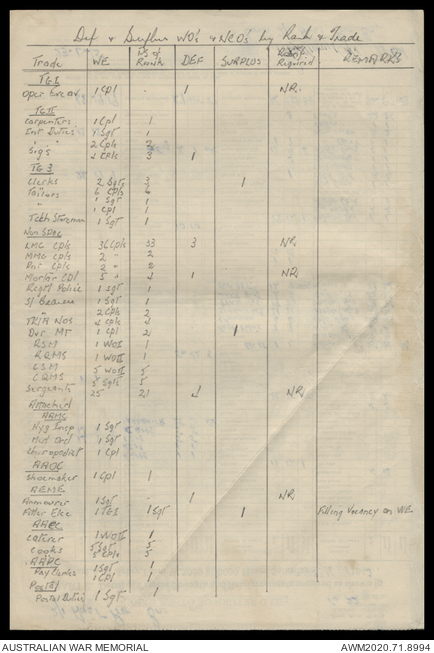 Def & Surplus WO's & NCO's by Rank & Trade
Trade WE Rank DEF SURPLUS Required REMARKS
TG I
Oper 1 Cpl - 1 NR.
TG II
Carpenters 1 Cpl 1
Int Duties 1 Sgt 1
" " 2 Cpls 2
Sigs 4 Cpls 3 1
TG 3
Clerks 2 Sgts 3 1
6 Cpls 6
1 Sgt 1
" 1 Cpl 1
Tech Storeman 1 Sgt 1
LMG Cpls 36 Cpls 33 3 NR
MMG Cpls 2 " 2
Pnr Cpls 2 "
Mortar Cpl 5 " 4 1 NR
Regtl Police 1 Sgt 1
S/ Bearers 1 Sgt 1
" 2 Cpls 2
4 Cpls 4
Dvr MT 1 Cpl 2 1
RSM 1 WOI 1
RQMS 1 WOII 1
CSM 5 WOII 5
CQMS 5 Sgts 5
Sergeants 25 21 NR
Attached
AAMC
Hyg Insp 1 Sgt 1
Med Ord 1 Sgt
Chiropodist 1 Cpl
AAOC
Shoemaker 1 Cpl 1
AEME
Armourer 1 Sgt - 1 NR
Fitter Elec 1 Sgt 1 Filling Vacancy on WE
AACC
Caterer 1 WOII 1
Cooks 5 Sgts 5
5 Cpls 5
AAPC
Pay Clerks 1 Sgt 1
1 Cpl 1
Postal
Postal Duties 1 Sgt 1
AUSTRALIAN WAR MEMORIAL AWM2020.71.8994